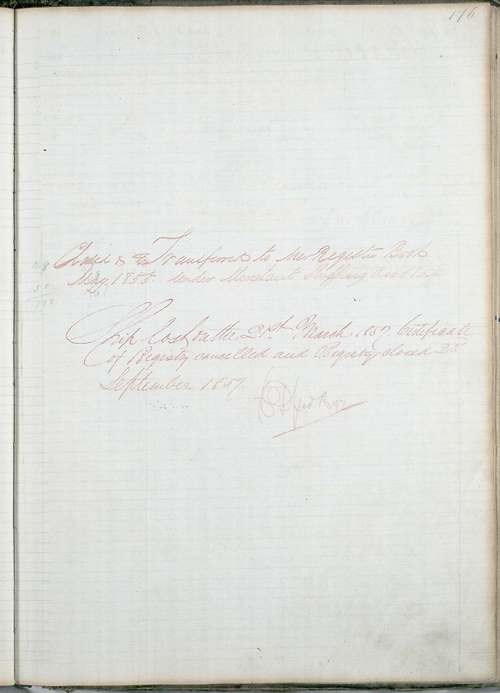 176
Closed & Transferred to New Register Book
May 1855 under Merchant Shipping Act 1854
Ship Lost on the 21st March 1857 Certificate
of Registry cancelled and Registry closed 2nd
September 1857